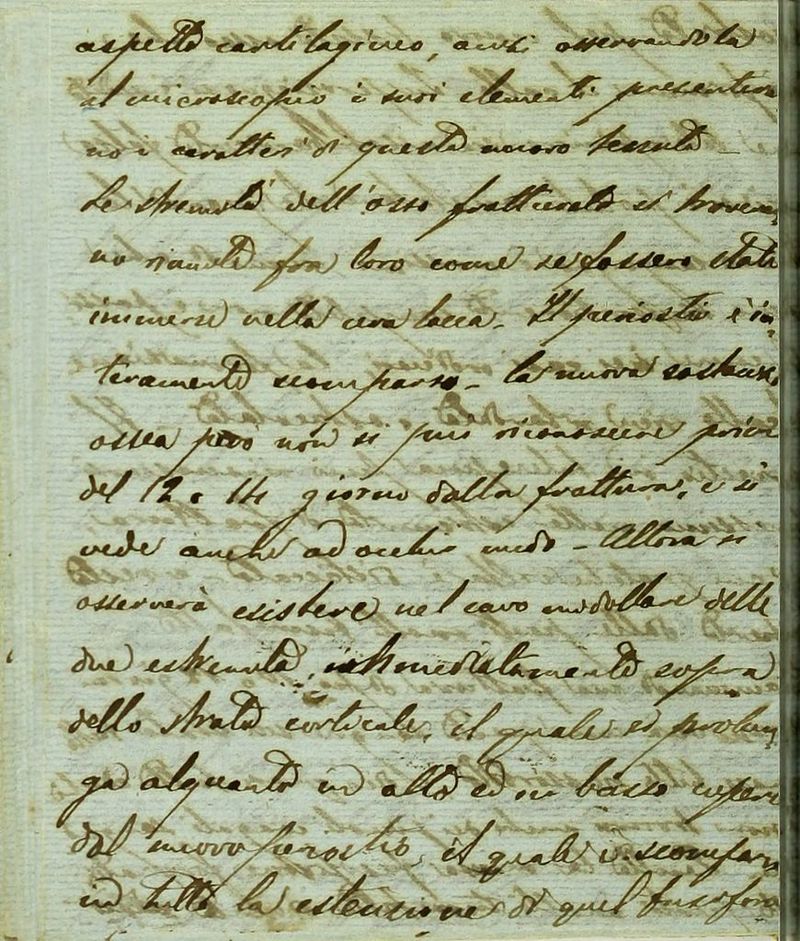 aspetto cartilagineo, anzi osservandola
al microscopio i suoi elementi presentera
no i caratteri di questo nuovo tessuto –
Le stremità dell'osso fratturato si trovera,
no riunite fra loro come se fossero state
immerse nella cera lacca – Il periostio è in,
teramente scomparso – la nuova sostanza
ossea però non si può riconoscere prima
del 12 o 14 giorno dalla frattura, e si
vede anche ad occhio nudo – Allora si
osserverà esistere nel cavo midollare delle
due estremità, immediatamente sopra
dello strato corticale, il quale si prolun,
ga alquanto in alto ed in basso
dal nuovo periostio, il quale è scompar,
in tutta la estensione di quel